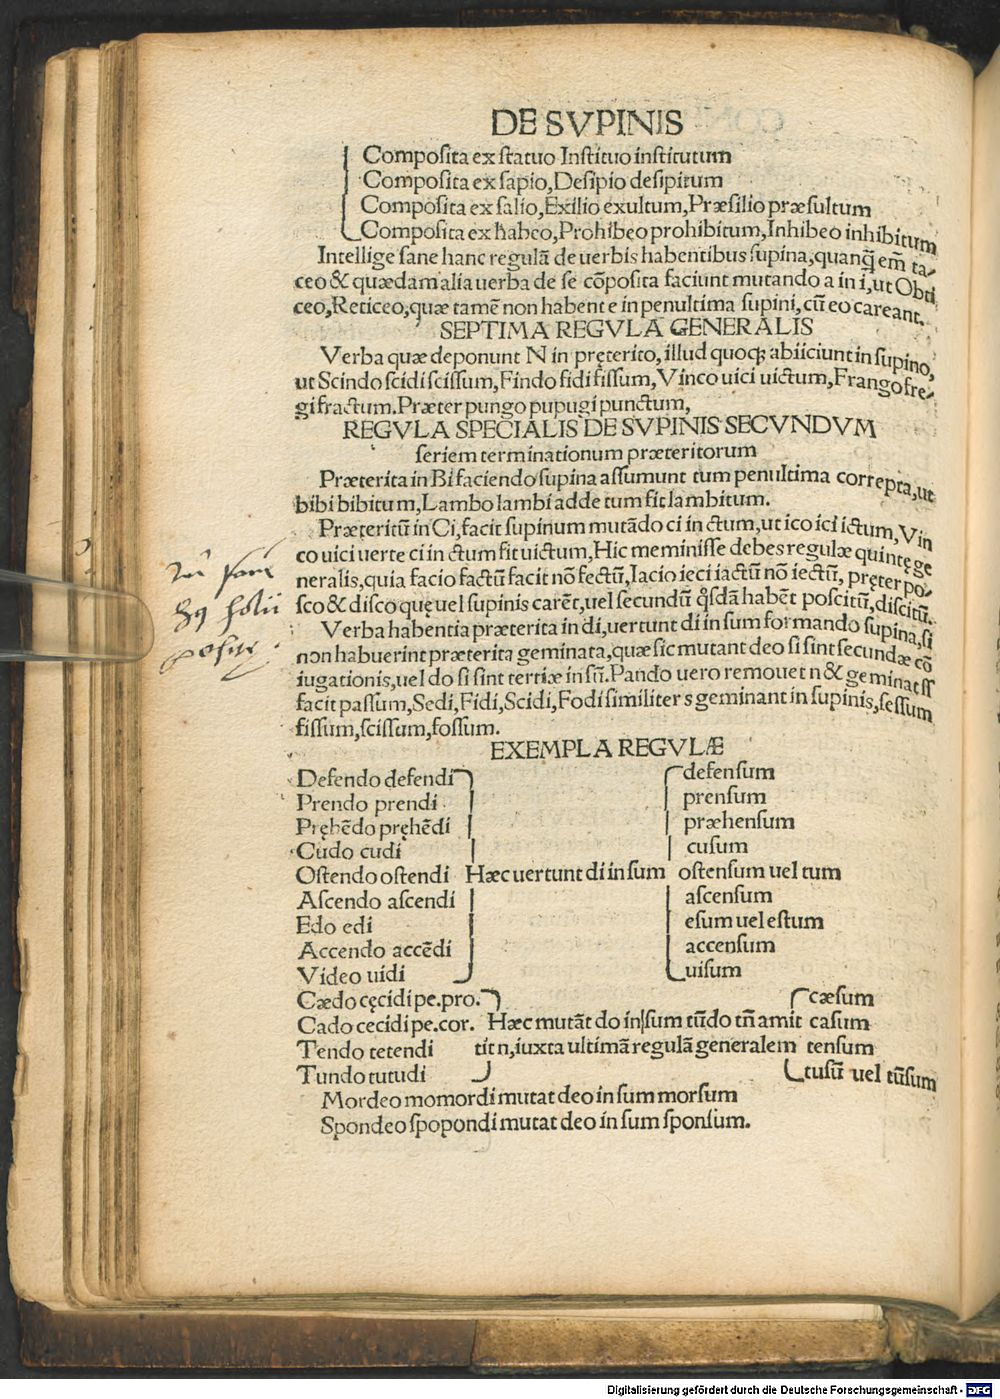 DE SVPINIS
Composita ex statuo Instituo institutum
Composita ex sapio, Desipio desipitum
Composita ex salio, Exilio exultum, Præsilio præsultum
Composita ex habeo, Prohibeo prohibitum, Inhibeo inhibitum
Intellige sane hanc regulā de uerbis habentibus supina, quanq̃ em̄ ta-
ceo & quædam alia uerba de se cōposita faciunt mutando a in i, ut Obti
ceo, Reticeo, quæ tamē non habent e in penultima supini, cū eo careant.
SEPTIMA REGVLA GENERALIS
Verba quæ deponunt N in pręterito, illud quoq; abiiciunt in supino,
ut Scindo scidi scissum, Findo fidi fissum, Vinco uici uictum, Frango fre-
gi fractum. Præter pungo pupugi punctum,
REGVLA SPECIALIS DE SVPINIS SECVNDVM
seriem terminationum præteritorum
Præterita in Bi faciendo supina assumunt tum penultima correpta, ut
bibi bibitum, Lambo lambi adde tum fit lambitum.
Præteritū in Ci, facit supinum mutādo ci in ctum, ut ico ici ictum, Vin
co uici uerte ci in ctum fit uictum, Hic meminisse debes regulæ quintę ge
neralis, quia facio factū facit nō fectū, Iacio ieci iactū nō iectū, pręter po-
sco & disco quę uel supinis carēt, uel secundū q̊sdā habēt poscitū, discitū.
Verba habentia præterita in di, uertunt di in sum formando supina, si
non habuerint præterita geminata, quæ sic mutant deo si sint secundæ cō
iugationis, uel do si sint tertiæ in sū. Pando uero remouet n & geminat ss
facit passum, Sedi, Fidi, Scidi, Fodi similiter s geminant in supinis, sessum
fissum, scissum, fossum.
EXEMPLA REGVLÆ
Defendo defendi defensum
Prendo prendi prensum
Pręhēdo pręhēdi præhensum
Cudo cudi cusum
Ostendo ostendi Hæc uertunt di in sum ostensum uel tum
Ascendo ascendi ascensum
Edo edi esum uel estum
Accendo accēdi accensum
Video uidi uisum
Cædo cęcidi pe. pro. cæsum
Cado cecidi pe. cor. Hæc mutāt do in sum tūdo tn̄ amit casum
Tendo tetendi tit n, iuxta ultimā regulā generalem tensum
Tundo tutudi tusū uel tūsum
Mordeo momordi mutat deo in sum morsum
Spondeo spopondi mutat deo in sum sponsum.
Digitalisierung gefördert durch die Deutsche Forschungsgemeinschaft - DFG